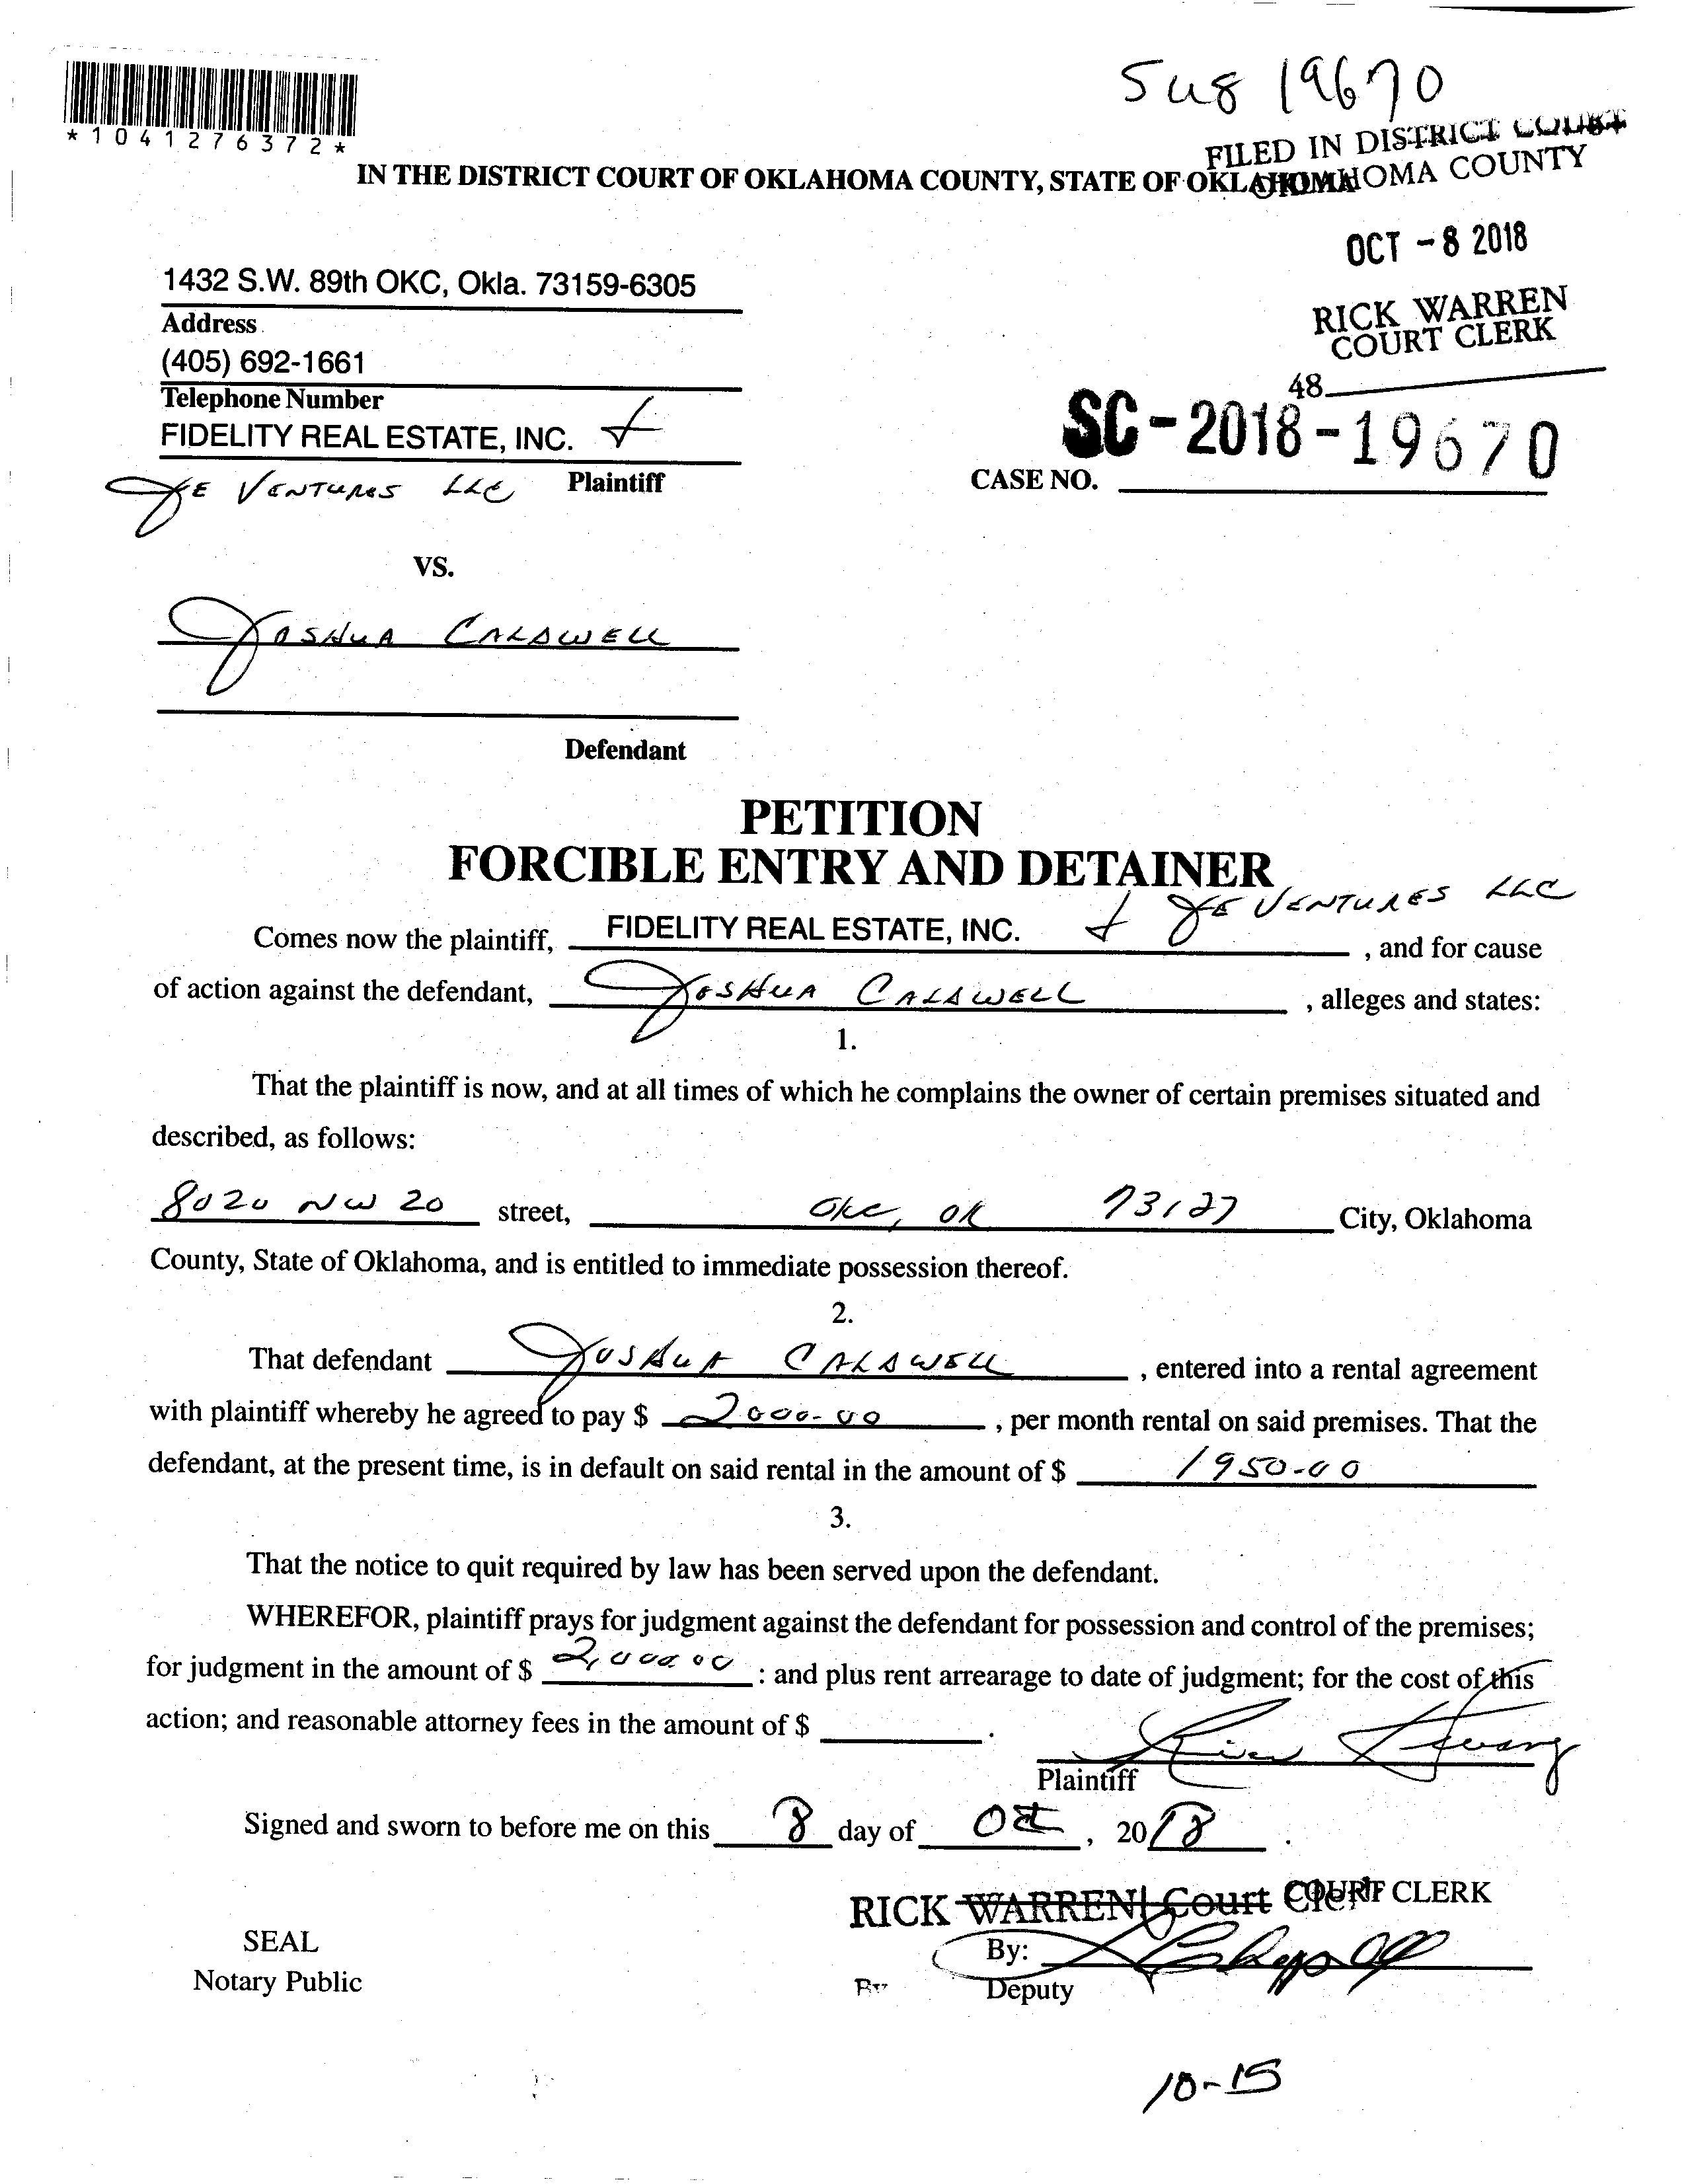 Su8 19670
*1041276372*
FILED IN DISTRICT COURT
OKLAHOMA COUNTY
IN THE DISTRICT COURT OF OKLAHOMA COUNTY, STATE OF OKLAHOMA
OCT - 8 2018
1432 S.W. 89th OKC, Okla. 73159-6305
Address
RICK WARREN
COURT CLERK
(405) 692-1661
Telephone Number
48
FIDELITY REAL ESTATE, INC. +
SC - 2018 - 19670
JE VENTURES LLC Plaintiff
CASE NO.
VS.
JOSHUA CALDWELL
Defendant
PETITION
FORCIBLE ENTRY AND DETAINER
Comes now the plaintiff, FIDELITY REAL ESTATE, INC. + JE VENTURES LLC , and for cause
of action against the defendant, JOSHUA CALDWELL , alleges and states:
1.
That the plaintiff is now, and at all times of which he complains the owner of certain premises situated and
described, as follows:
8020 NW 20 street, OKC, OK 73127 City, Oklahoma
County, State of Oklahoma, and is entitled to immediate possession thereof.
2.
That defendant JOSHUA CALDWELL , entered into a rental agreement
with plaintiff whereby he agreed to pay $ 2000-00 , per month rental on said premises. That the
defendant, at the present time, is in default on said rental in the amount of $ 1950-00
3.
That the notice to quit required by law has been served upon the defendant.
WHEREFOR, plaintiff prays for judgment against the defendant for possession and control of the premises;
for judgment in the amount of $ 2,000 00 : and plus rent arrearage to date of judgment; for the cost of this
action; and reasonable attorney fees in the amount of $ .
Plaintiff
Signed and sworn to before me on this 8 day of Oct , 2018 .
RICK WARREN, Court Clerk COURT CLERK
SEAL
By:
Notary Public
By Deputy
10-15